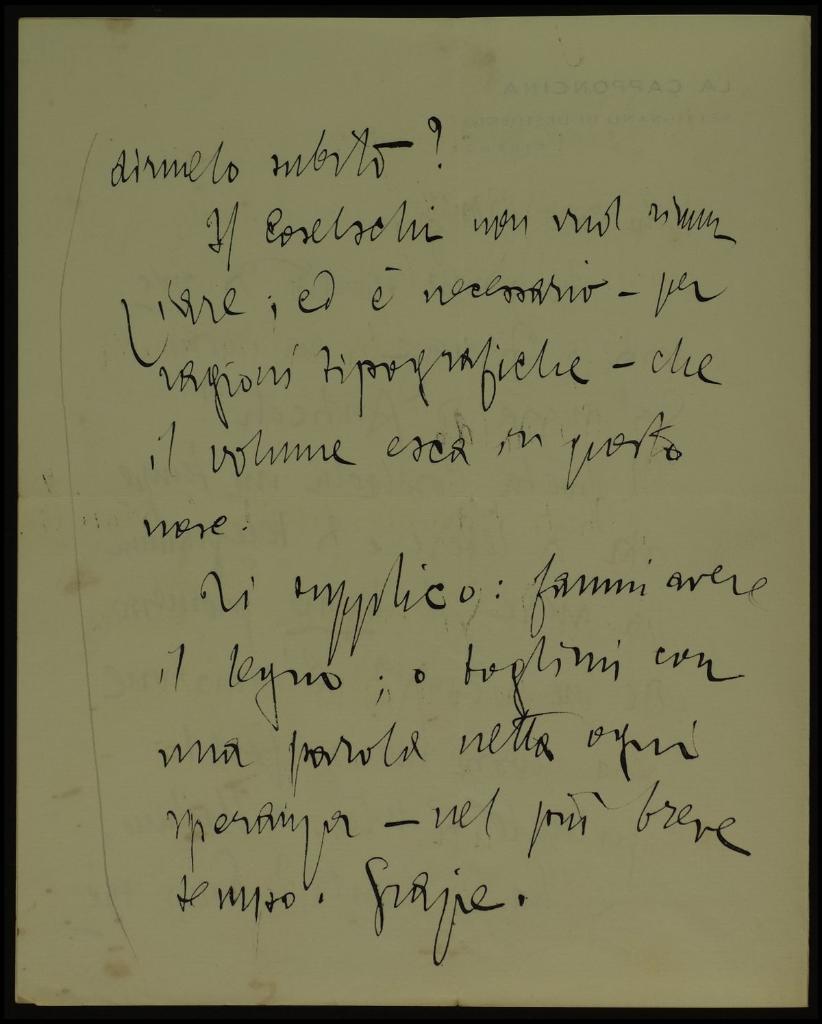 dirmelo subito?
Il Coselschi non vuol rinun
ziare; ed è necessario – per
ragioni tipografiche – che
il volume esca in questo
mese.
Ti supplico: fammi avere
il legno; o toglimi con
una parola netta ogni
speranza – nel più breve
tempo. Grazie.
LA CAPPONCINA